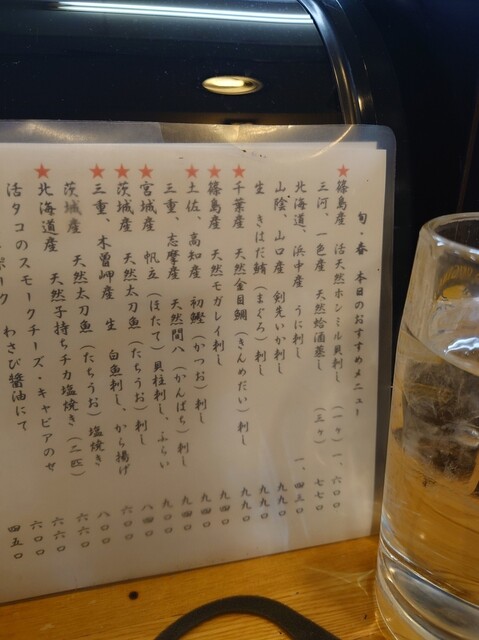 旬・春 本日のおすすめメニュー
★篠島産 活天然ホンミル貝刺し (一ヶ) 一、六〇〇
三河、一色産 天然蛤酒蒸し (三ヶ) 七七〇
北海道、浜中産 うに刺し 一、四三〇
山陰、山口産 剣先いか刺し 九九〇
生 きはだ鮪(まぐろ)刺し 九九〇
★千葉産 天然金目鯛(きんめだい)刺し 九九〇
★篠島産 天然モガレイ刺し 九四〇
★土佐、高知産 初鰹(かつお)刺し 九四〇
三重、志摩産 天然間八(かんぱち)刺し 九四〇
★宮城産 帆立(ほたて)貝柱刺し、ふらい 八四〇
★茨城産 天然太刀魚(たちうお)刺し 六〇
★三重、木曽岬産 生 白魚刺し、から揚げ 八〇
茨城産 天然太刀魚(たちうお)塩焼き 六六〇
★北海道産 天然子持ちチカ塩焼き(二匹) 六〇
活タコのスモークチーズ・キャビアのせ 六〇
ポーク わさび醤油にて 四五〇